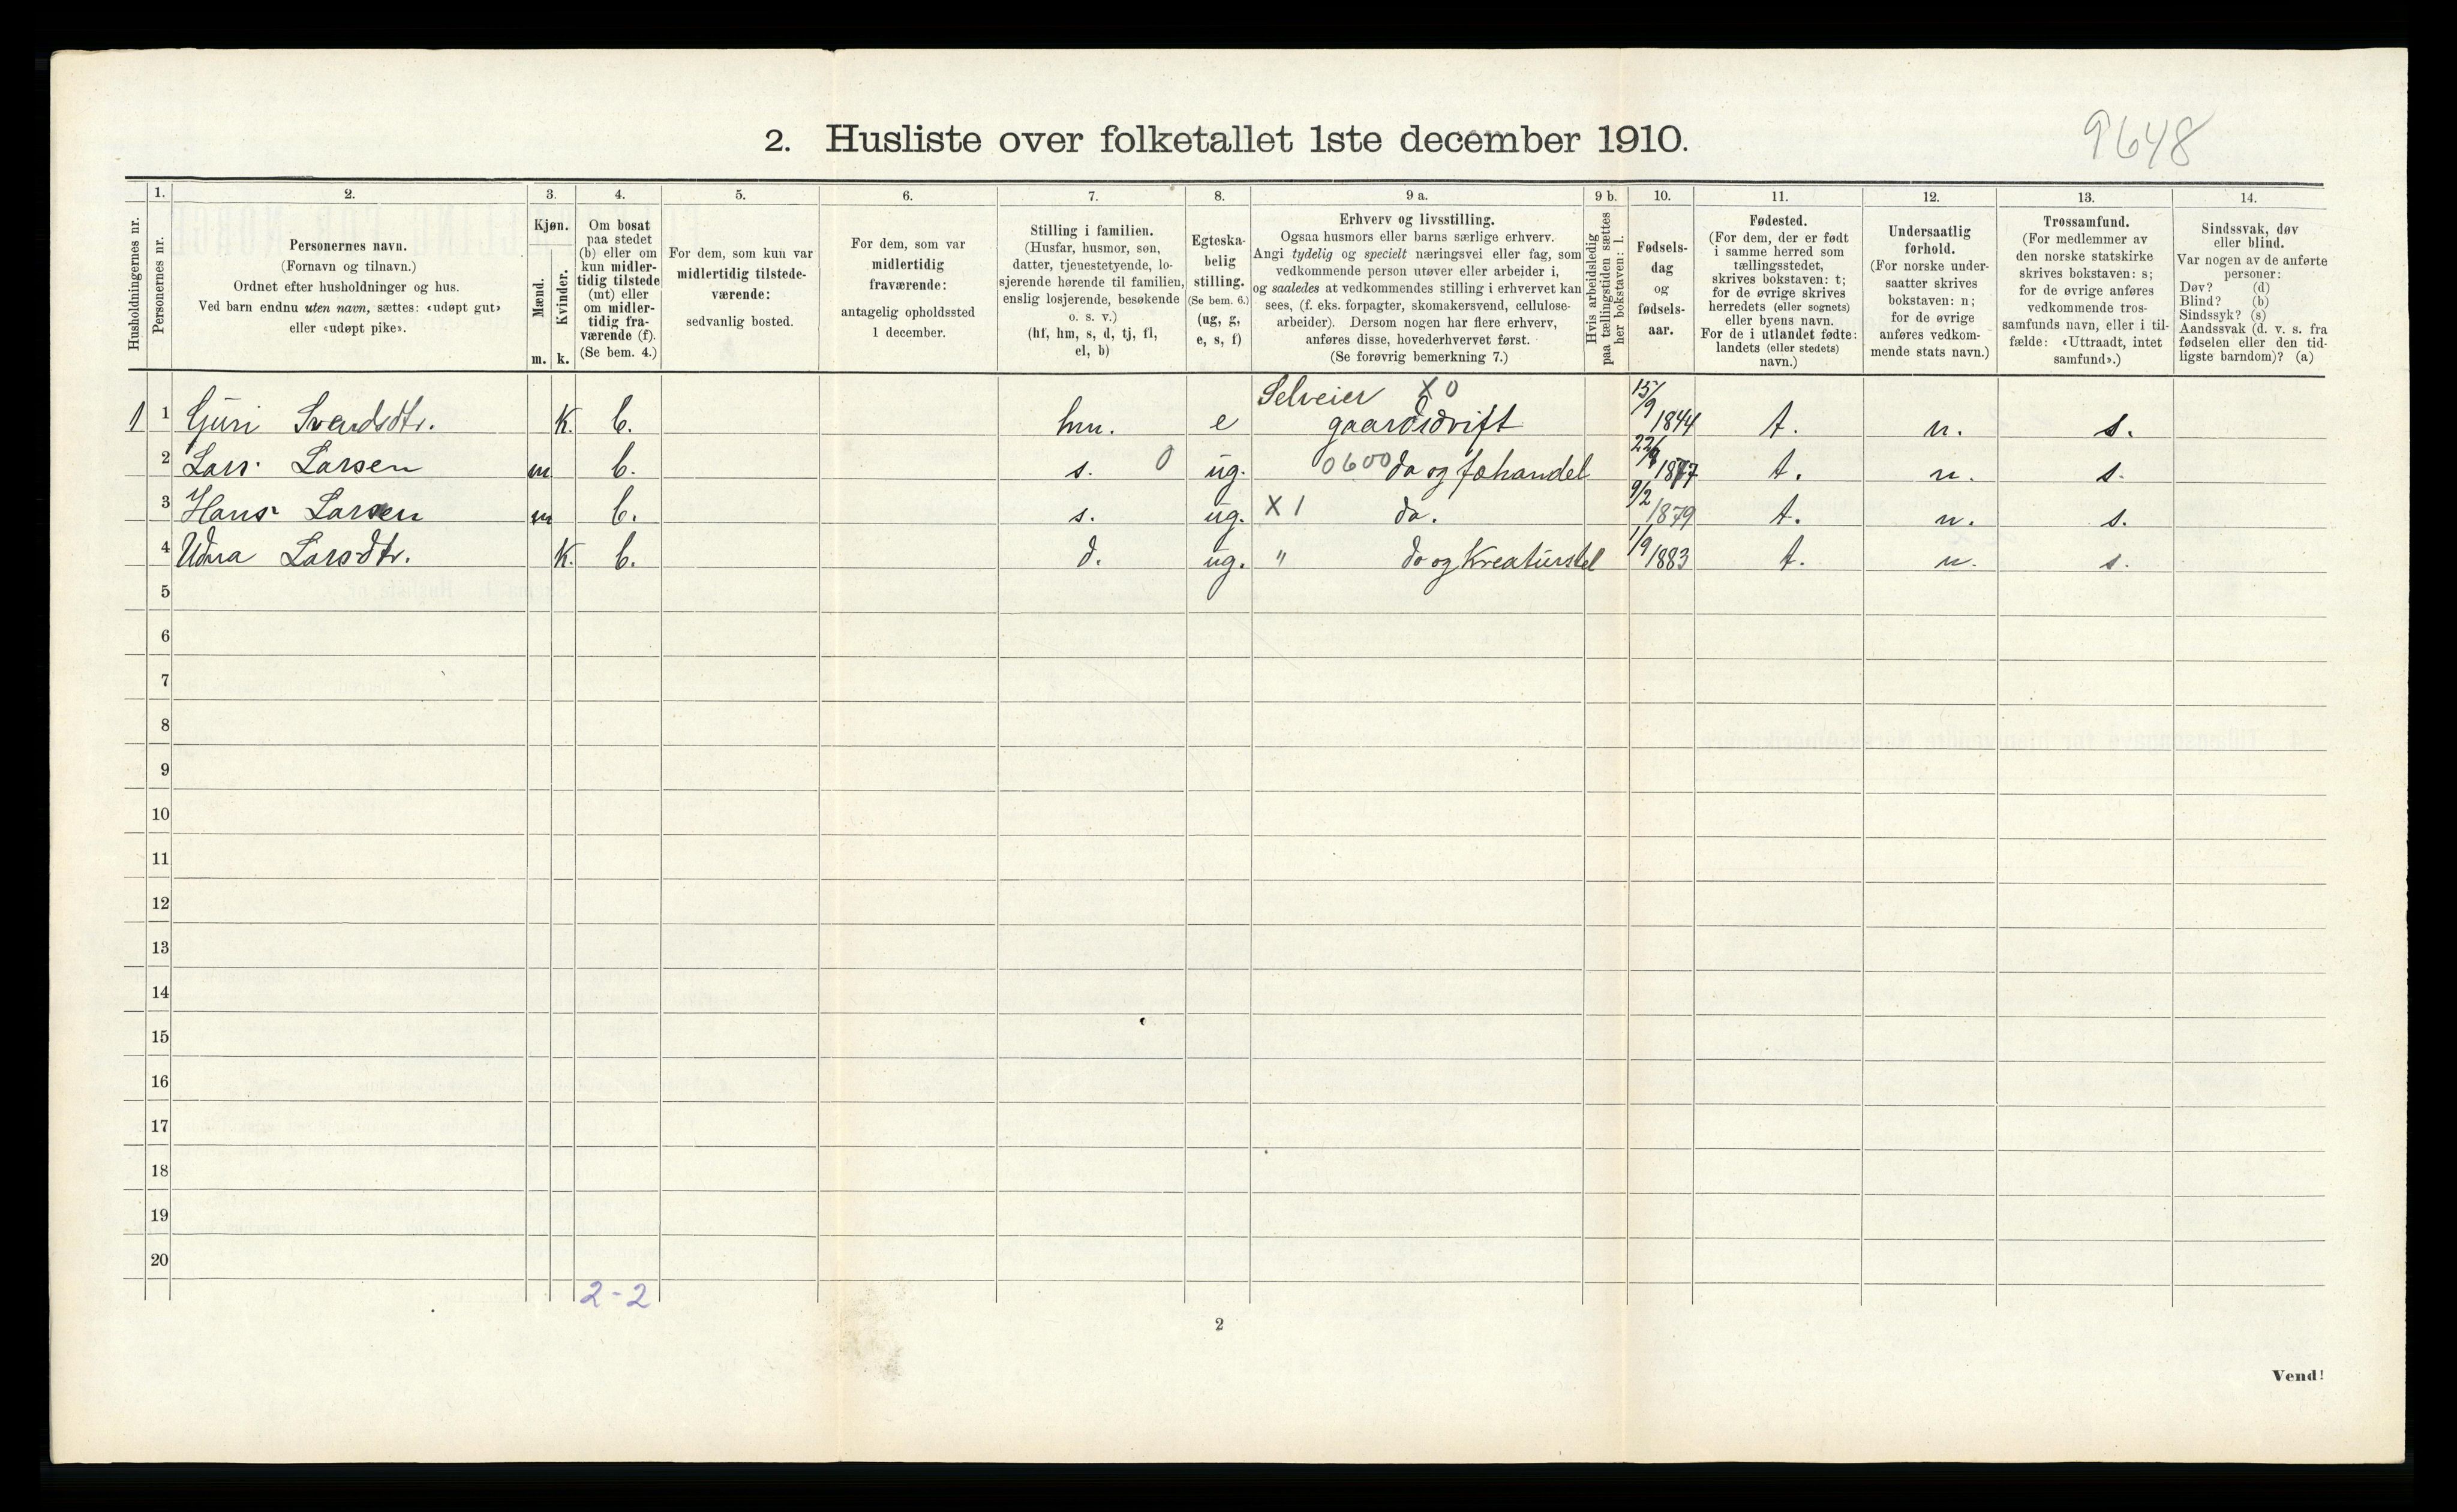 9648
2. Husliste over folketallet 1ste december 1910.
Husholdningernes nr.
1.
Personernes nr.
2.
Personernes navn.
(Fornavn og tilnavn.)
Ordnet efter husholdninger og hus.
Ved barn endnu uten navn, sættes: «udøpt gut»
eller «udøpt pike».
3.
Kjøn.
Mænd.
m.
Kvinder.
k.
4.
Om bosat
paa stedet
(b) eller om
kun midler-
tidig tilstede
(mt) eller
om midler-
tidig fra-
værende (f).
(Se bem. 4.)
5.
For dem, som kun var
midlertidig tilstede-
værende:
sedvanlig bosted.
6.
For dem, som var
midlertidig
fraværende:
antagelig opholdssted
1 december.
7.
Stilling i familien.
(Husfar, husmor, søn,
datter, tjenestetyende, lo-
sjerende hørende til familien,
enslig losjerende, besøkende
o. s. v.)
(hf, hm, s, d, tj, fl,
el, b)
8.
Egteska-
belig
stilling.
(Se bem. 6.)
(ug, g,
e, s, f)
9 a.
Erhverv og livsstilling.
Ogsaa husmors eller barns særlige erhverv.
Angi tydelig og specielt næringsvei eller fag, som
vedkommende person utøver eller arbeider i,
og saaledes at vedkommendes stilling i erhvervet kan
sees, (f. eks. forpagter, skomakersvend, cellulose-
arbeider). Dersom nogen har flere erhverv,
anføres disse, hovederhvervet først.
(Se forøvrig bemerkning 7.)
9 b.
Hvis arbeidsledig
paa tællingstiden sættes
her bokstaven: l.
10.
Fødsels-
dag
og
fødsels-
aar.
11.
Fødested.
(For dem, der er født
i samme herred som
tællingsstedet,
skrives bokstaven: t;
for de øvrige skrives
herredets (eller sognets)
eller byens navn.
For de i utlandet fødte:
landets (eller stedets)
navn.)
12.
Undersaatlig
forhold.
(For norske under-
saatter skrives
bokstaven: n;
for de øvrige
anføres vedkom-
mende stats navn.)
13.
Trossamfund.
(For medlemmer av
den norske statskirke
skrives bokstaven: s;
for de øvrige anføres
vedkommende tros-
samfunds navn, eller i til-
fælde: «Uttraadt, intet
samfund».)
14.
Sindssvak, døv
eller blind.
Var nogen av de anførte
personer:
Døv? (d)
Blind? (b)
Sindssyk? (s)
Aandssvak (d. v. s. fra
fødselen eller den tid-
ligste barndom)? (a)
Selveier X 0
1 1 Guri Svendsdtr. K. b. hm. e gaardsdrift 15/9 1844 t. n. s.
2 Lars Larsen m b. s. 0 ug. 0600 do og fæhandel 1877 t. n. s.
3 Hans Larsen m b. s. ug. X 1 do. 9/2 1879 t. n. s.
4 Larsdtr. K. b. d. ug. " do og Kreaturstel 1/9 1883 t. n. s.
5
6
7
8
9
10
11
12
13
14
15
16
17
18
19
20
2-2
2
Vend!